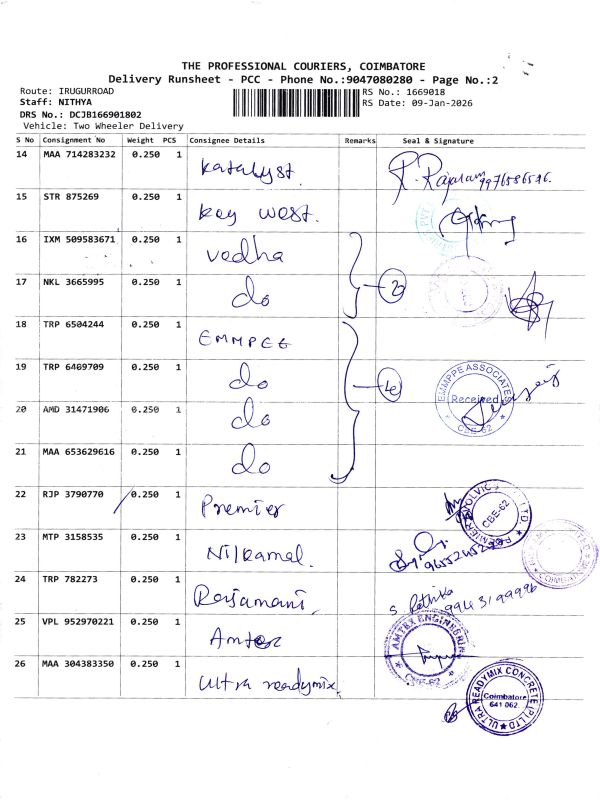 THE PROFESSIONAL COURIERS, COIMBATORE
Delivery Runsheet - PCC - Phone No.:9047080280 - Page No.:2
Route: IRUGURROAD
Staff: NITHYA
DRS No.: DCJB166901802
Vehicle: Two Wheeler Delivery
RS No.: 1669018
RS Date: 09-Jan-2026
S No Consignment No Weight PCS Consignee Details Remarks Seal & Signature
14 MAA 714283232 0.250 1 Katalyst. R. Rajaram
15 STR 875269 0.250 1 key west.
16 IXM 509583671 0.250 1 vedha
17 NKL 3665995 0.250 1 do
18 TRP 6504244 0.250 1 EMMPEE
19 TRP 6409709 0.250 1 do
EMMPPE ASSOCIATES
Received
CBE-62
20 AMD 31471906 0.250 1 do
21 MAA 653629616 0.250 1 do
22 RJP 3790770 0.250 1 Premier
CBE-62
23 MTP 3158535 0.250 1 Nilkamal.
24 TRP 782273 0.250 1 Rajamani. S. Rathika 9943199996
25 VPL 952970221 0.250 1 Amtex
AMTEX ENGINEERING
26 MAA 304383350 0.250 1 Ultra readymix.
ULTRA READYMIX CONCRETE (P) LTD
Coimbatore
641 062.